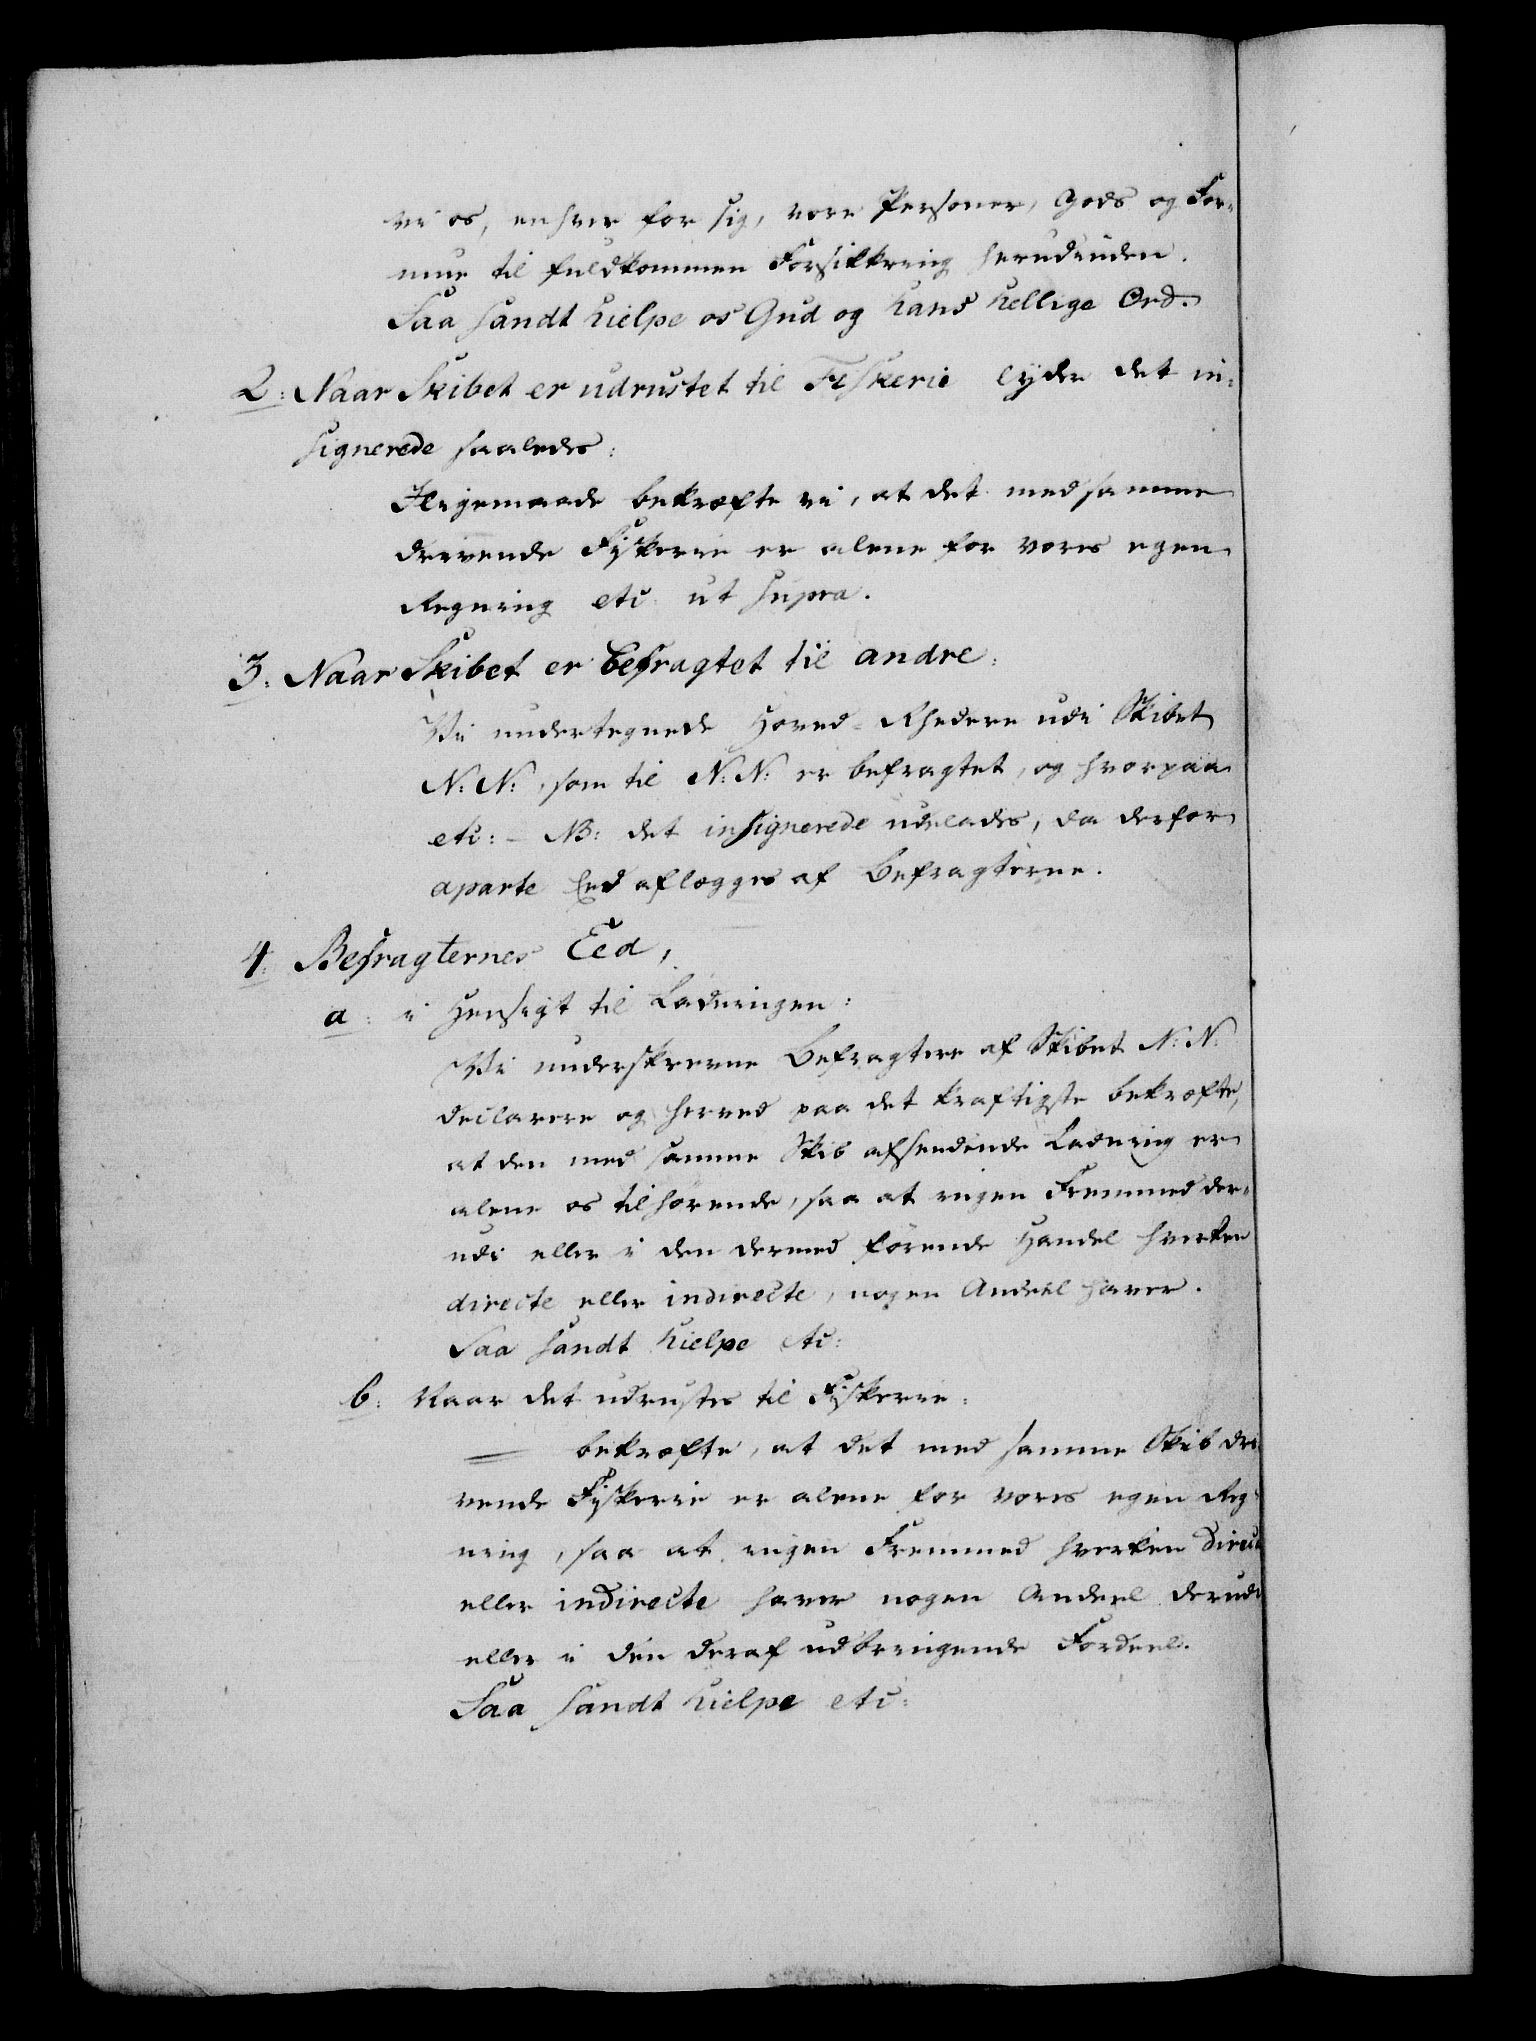 vi os, enhver for sig, vore Personer, Gods og For-
mue til fuldkommen Forsikkring herudinden.
Saa sandt hielpe os Gud og hans hellige Ord.
2: Naar Skibet er udrustet til Fiskerie lyder det in-
signerede saaledes:
Iligemaade bekræfte vi, at det med samme
drivende Fiskerie er alene for vores egen
Regning etc ut supra.
3. Naar Skibet er befragtet til andre:
Vi undertegnede Hoved-Rhedere udi Skibet
N: N:, som til N: N: er befragtet, og hvorpaa
etc: - NB: det insignerede udelades, da derfor
aparte Eed aflægges af Befragterne.
4. Befragternes Eed,
a: i Hensigt til Ladningen:
Vi underskrevne Befragtere af Skibet N: N:
declarere og herved paa det kraftigste bekræfte,
at den med samme Skib afsendende Ladning er
alene os tilhørende, saa at ingen Fremmed der-
udi eller i den dermed førende Handel hverken
directe eller indirecte, nogen Andeel haver.
Saa sandt hielpe etc:
b: Naar det udrustes til Fiskerie:
— bekræfte, at det med samme Skib dri-
vende Fiskerie er alene for vores egen Reg-
ning, saa at ingen Fremmed hverken directe
eller indirecte haver nogen Andeel derudi
eller i den deraf udbringende Fordeel.
Saa sandt hielpe etc: